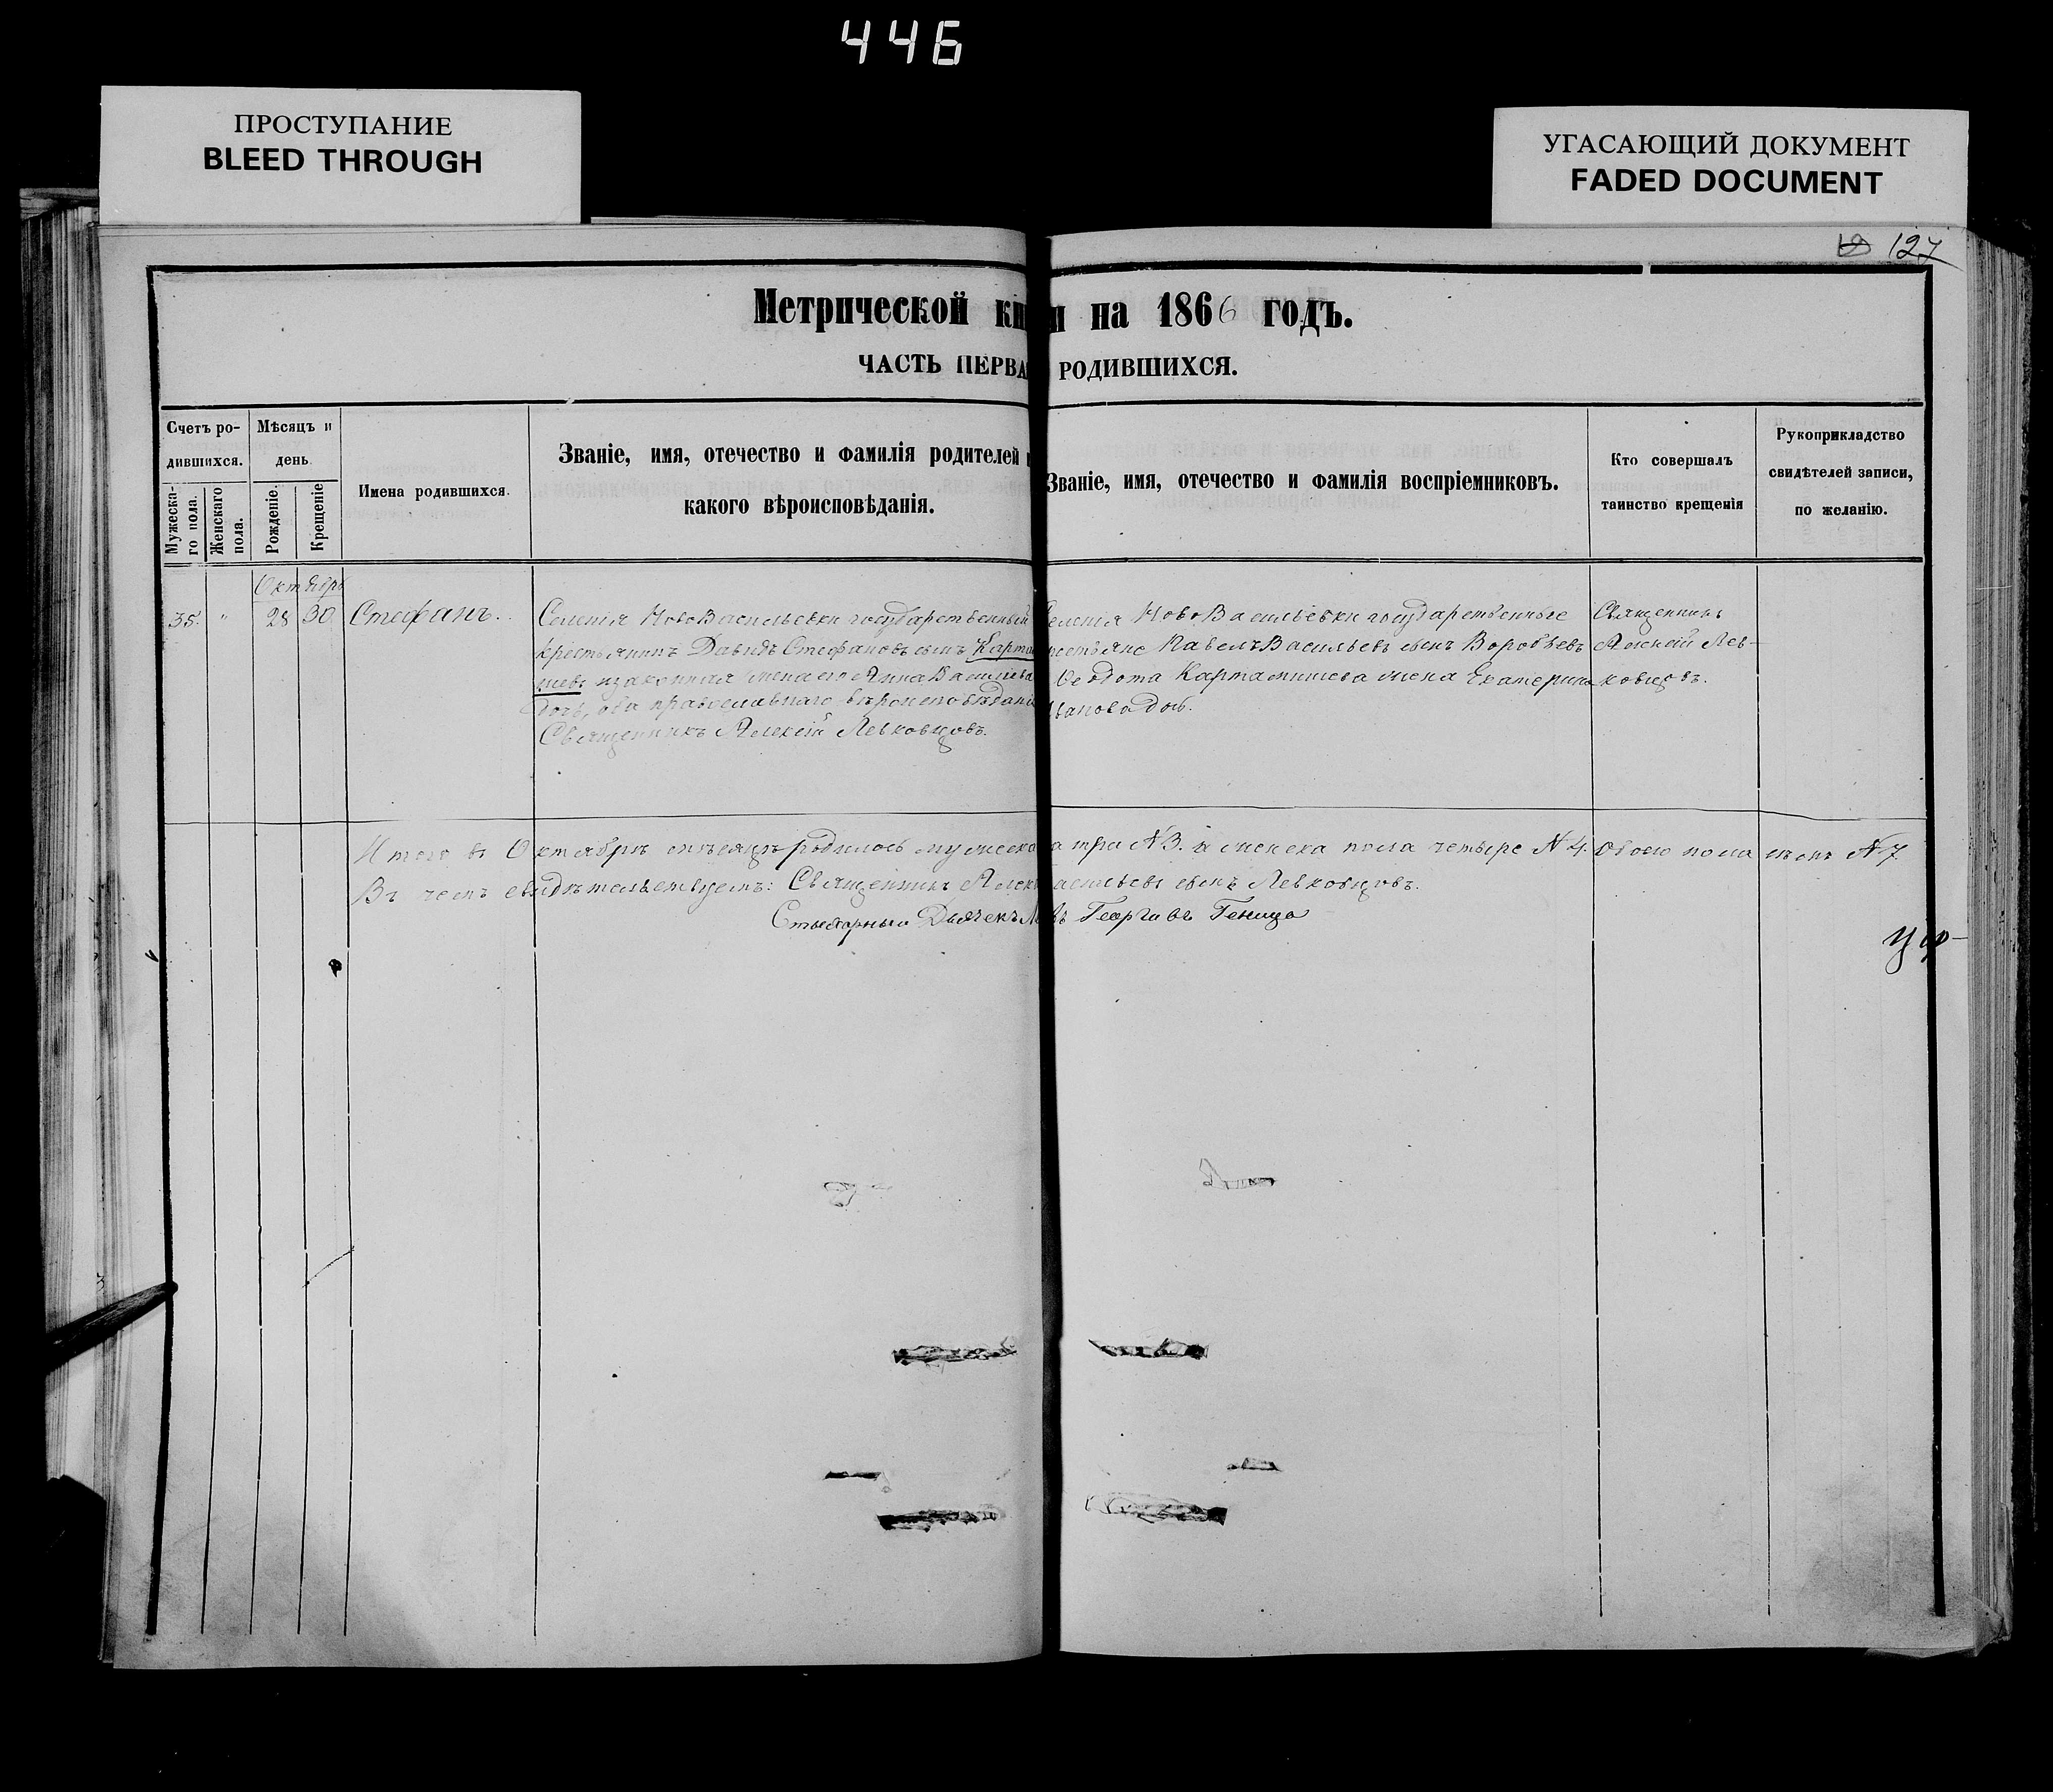 446
ПРОСТУПАНИЕ
BLEED THROUGH
УГАСАЮЩИЙ ДОКУМЕНТ
FADED DOCUMENT
127
Метрической кни
и на 1866 годъ.
ЧАСТЬ ПЕРВА
РОДИВШИХСЯ.
Счетъ ро-
дившихся.
Мужеска-
го пола.
Женскаго
пола.
Мѣсяцъ и
день.
Рожденіе.
Крещеніе
Имена родившихся.
Званіе, имя, отечество и фамилія родителей и
какого вѣроисповѣданія.
Званіе, имя, отечество и фамилія воспріемниковъ.
Кто совершалъ
таинство крещенія
Рукоприкладство
свидѣтелей записи,
по желанію.
Октябрь
35. " 28 30 Стефанъ.
Селенія НовоВасильевки государственный
крестьянинъ Давидъ Стефановъ сынъ Карта
шевъ и законная жена его Анна Василіева
дочь, оба православнаго вѣроисповѣданія
Священникъ Алексій Левковцовъ.
Селенія НовоВасильевки государственные
крестьяне Павелъ Васильевъ сынъ Воробьевъ
Ѳеодота Картамышева жена Екатерина
Иванова дочь.
Священникъ
Алексій Лев-
ковцовъ.
Итого въ Октябрѣ мѣсяцѣ родилось мужеска
а три №3. и женска пола четыре №4. Обоего пола семь №7
Въ чемъ свидѣтельствуемъ: Священникъ Алекс
асильевъ сынъ Левковцовъ.
Дьячекъ
въ Георгиевъ Геница